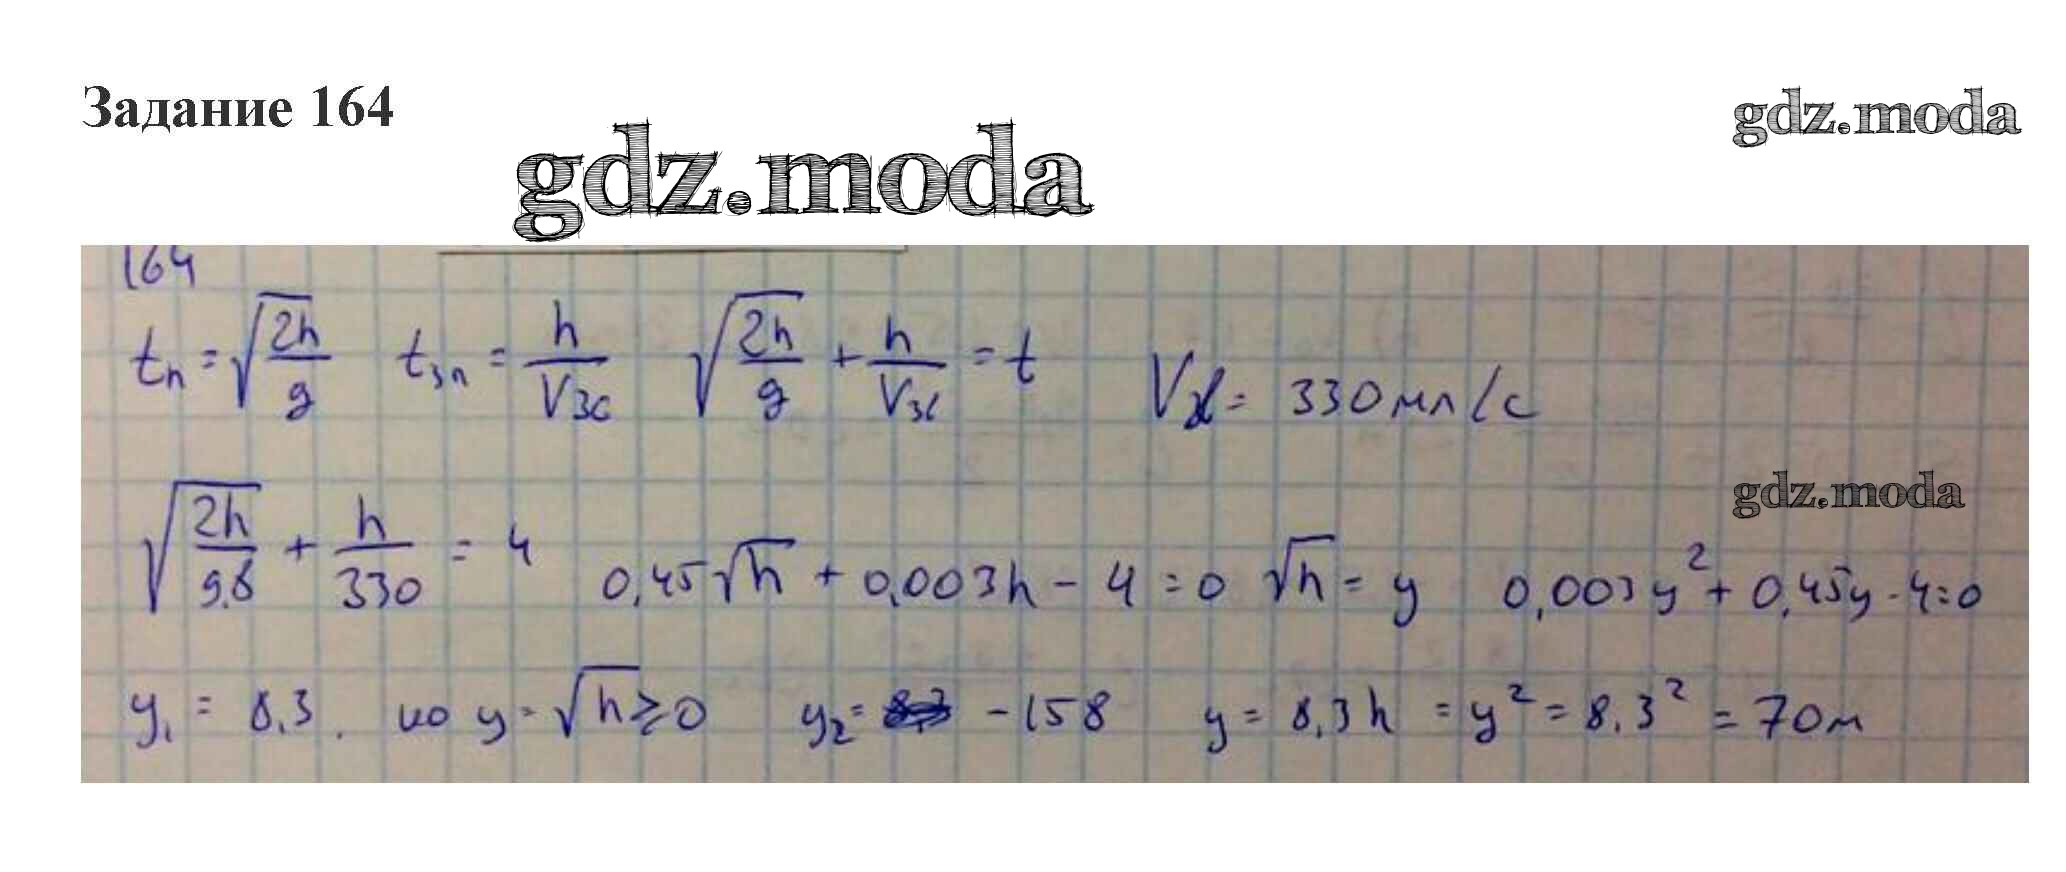 Задание 164
gdz.moda
gdz.moda
164
tп = √(2h/g) tзп = h/Vзс √(2h/g) + h/Vзс = t Vзс = 330 мл/с
√(2h/9.8) + h/330 = 4 0,45√h + 0,003h - 4 = 0 √h = y 0,003y² + 0,45y - 4 = 0
gdz.moda
y₁ = 8,3. но y = √h ≥ 0 y₂ = -158 y = 8,3 h = y² = 8,3² = 70м